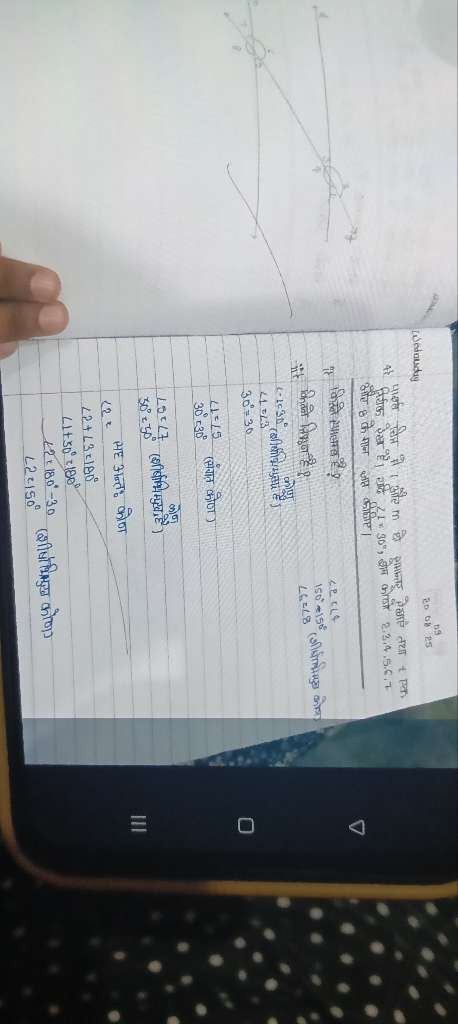 Wednesday
20 08 25
पार्श्व चित्र में l और m दो समान्तर रेखाएँ तथा t एक
तिर्यक रेखा है। यदि ∠1 = 30°, कोण 2,3,4,5,6,7
और 8 के मान ज्ञात कीजिए।
∠1 = 30°
∠1 = ∠3 (शीर्षाभिमुख कोण है)
30° = 30
∠1 = ∠5
30° = 30° (संगत कोण)
∠5 = ∠7
30° = 30° (शीर्षाभिमुख कोण है)
∠2 =
सह अन्तः कोण
∠2 + ∠3 = 180°
∠1 + 30° = 180°
∠2 = 180° - 30
∠2 = 150° (शीर्षाभिमुख कोण)
∠2 = ∠4
150° = 150° (शीर्षाभिमुख कोण)
∠6 = ∠8